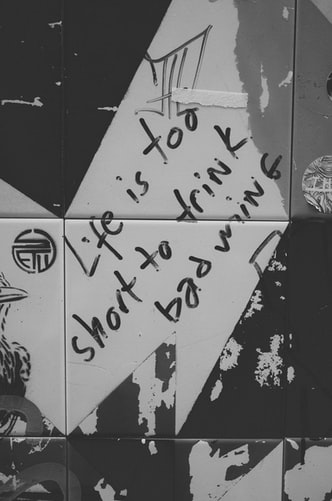 Life is too
short to trink
bad wine